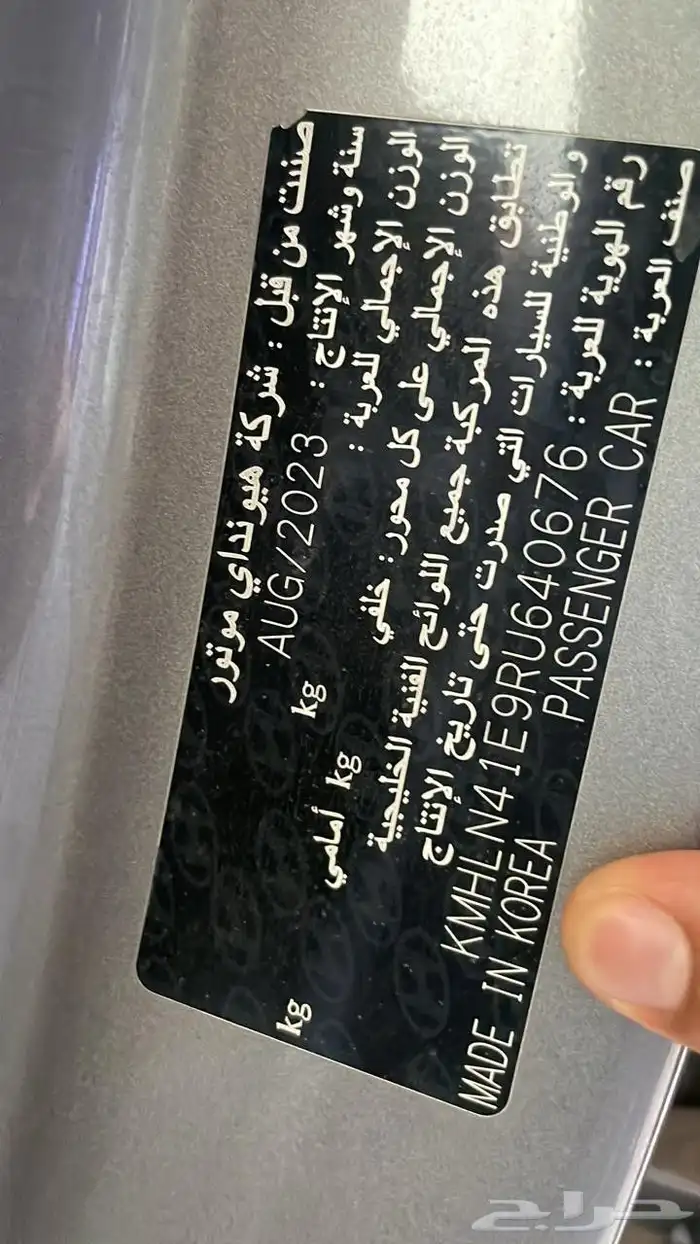 صنعت من قبل : شركة هيونداي موتور
سنة وشهر الإنتاج : AUG/2023
الوزن الإجمالي للعربة : kg
الوزن الإجمالي على كل محور : خلفي kg أمامي kg
تتطابق هذه المركبة جميع اللوائح الفنية الخليجية
والوطنية للسيارات التي صدرت حتى تاريخ الإنتاج
رقم الهوية للعربة : KMHLN41E9RU640676
صنف العربة : PASSENGER CAR
MADE IN KOREA
حراج